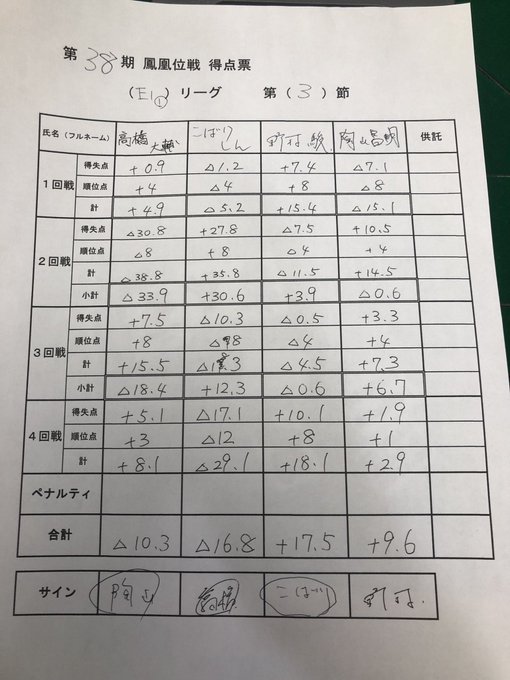 第 38 期 鳳凰位戦 得点票
(E1①) リーグ 第 ( 3 ) 節
氏名 (フルネーム) 高橋大輔 こばりしん 野村駿 陶山昌明 供託
1回戦
得失点 +0.9 △1.2 +7.4 △7.1
順位点 +4 △4 +8 △8
計 +4.9 △5.2 +15.4 △15.1
2回戦
得失点 △30.8 +27.8 △7.5 +10.5
順位点 △8 +8 △4 +4
計 △38.8 +35.8 △11.5 +14.5
小計 △33.9 +30.6 +3.9 △0.6
3回戦
得失点 +7.5 △10.3 △0.5 +3.3
順位点 +8 △8 △4 +4
計 +15.5 △18.3 △4.5 +7.3
小計 △18.4 +12.3 △0.6 +6.7
4回戦
得失点 +5.1 △17.1 +10.1 +1.9
順位点 +3 △12 +8 +1
計 +8.1 △29.1 +18.1 +2.9
ペナルティ
合計 △10.3 △16.8 +17.5 +9.6
サイン 陶山 高橋 こばり 野村